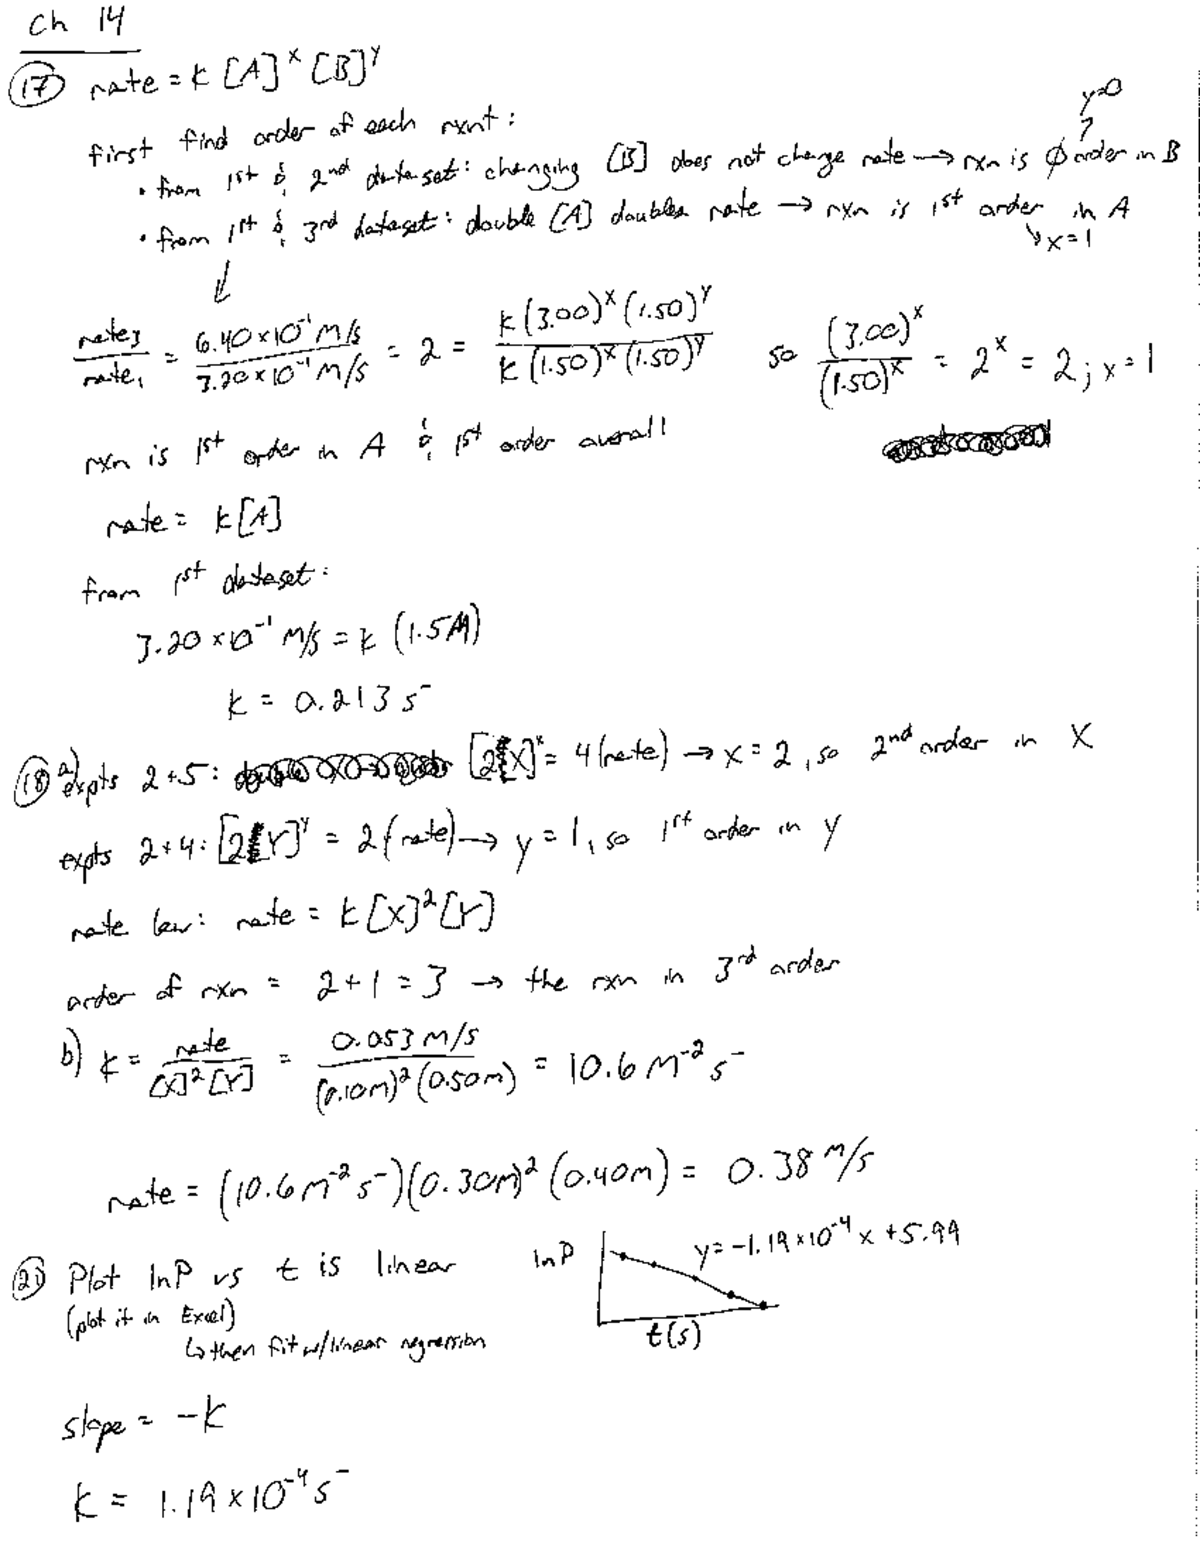 Ch 14
(17) rate = k [A]^x [B]^y
first find order of each rxnt:
y=0
• from 1st & 2nd dataset: changing [B] does not change rate → rxn is Ø order in B
• from 1st & 3rd dataset: double [A] doubles rate → rxn is 1st order in A
↘ x=1
rate3/rate1 = 6.40×10^-1 M/s / 3.20×10^-1 M/s = 2 = k(3.00)^x(1.50)^y / k(1.50)^x(1.50)^y so (3.00)^x/(1.50)^x = 2^x = 2; x=1
rxn is 1st order in A & 1st order overall
rate = k[A]
from 1st dataset:
3.20×10^-1 M/s = k (1.5M)
k = 0.213 s^-
(18) a) expts 2+5: [2[X]^x = 4(rate) → x=2, so 2nd order in X
expts 2+4: [2[Y]^y = 2(rate) → y=1, so 1st order in Y
rate law: rate = k[X]^2[Y]
order of rxn = 2+1=3 → the rxn in 3rd order
b) k = rate/[X]^2[Y] = 0.053 M/s / (0.10M)^2(0.50M) = 10.6 M^-2 s^-
rate = (10.6 M^-2 s^-)(0.30M)^2(0.40M) = 0.38 M/s
(21) Plot lnP vs t is linear
(plot it in Excel)
↳ then fit w/linear regression
lnP
y=-1.19×10^-4 x +5.99
t(s)
slope = -k
k = 1.19×10^-4 s^-